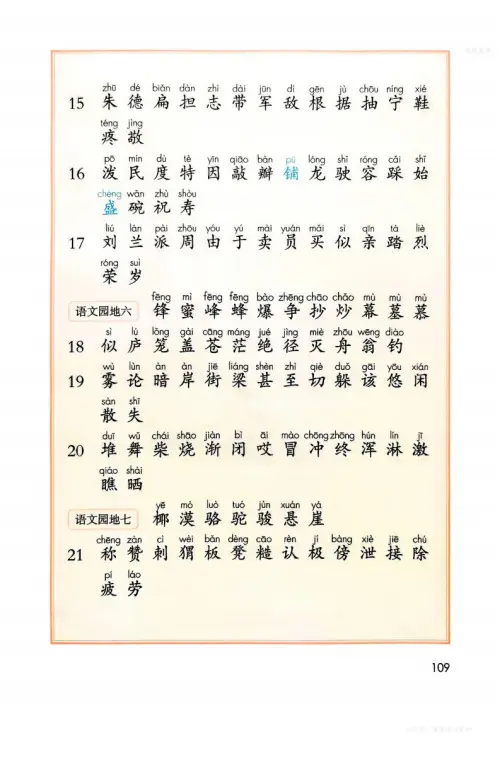 zhū dé biǎn dàn zhì dài jūn dí gēn jù chōu níng xié
15 朱 德 扁 担 志 带 军 敌 根 据 抽 宁 鞋
téng jìng
疼 敬
pō mín dù tè yīn qiāo bàn pū lóng shǐ róng cǎi shǐ
16 泼 民 度 特 因 敲 瓣 铺 龙 驶 容 踩 始
chéng wǎn zhù shòu
盛 碗 祝 寿
liú lán pài zhōu yóu yú mài yuán mǎi sì qīn tà liè
17 刘 兰 派 周 由 于 卖 员 买 似 亲 踏 烈
róng suì
荣 岁
fēng mì fēng fēng bào zhēng chāo chǎo mù mù mù
语文园地六 锋 蜜 峰 蜂 爆 争 抄 炒 幕 墓 慕
sì lú lǒng gài cāng máng jué jìng miè zhōu wēng diào
18 似 庐 笼 盖 苍 茫 绝 径 灭 舟 翁 钓
wù lùn àn àn jiē liáng shèn zhì qiè duǒ gāi yōu xián
19 雾 论 暗 岸 街 梁 甚 至 切 躲 该 悠 闲
sàn shī
散 失
duī wǔ chái shāo jiàn bì āi mào chōng zhōng hún lín jī
20 堆 舞 柴 烧 渐 闭 哎 冒 冲 终 浑 淋 激
qiáo shài
瞧 晒
yē mò luò tuó jùn xuán yá
语文园地七 椰 漠 骆 驼 骏 悬 崖
chēng zàn cì wèi bǎn dèng cāo rèn jí bàng xiè jiē chú
21 称 赞 刺 猬 板 凳 糙 认 极 傍 泄 接 除
pí láo
疲 劳
109